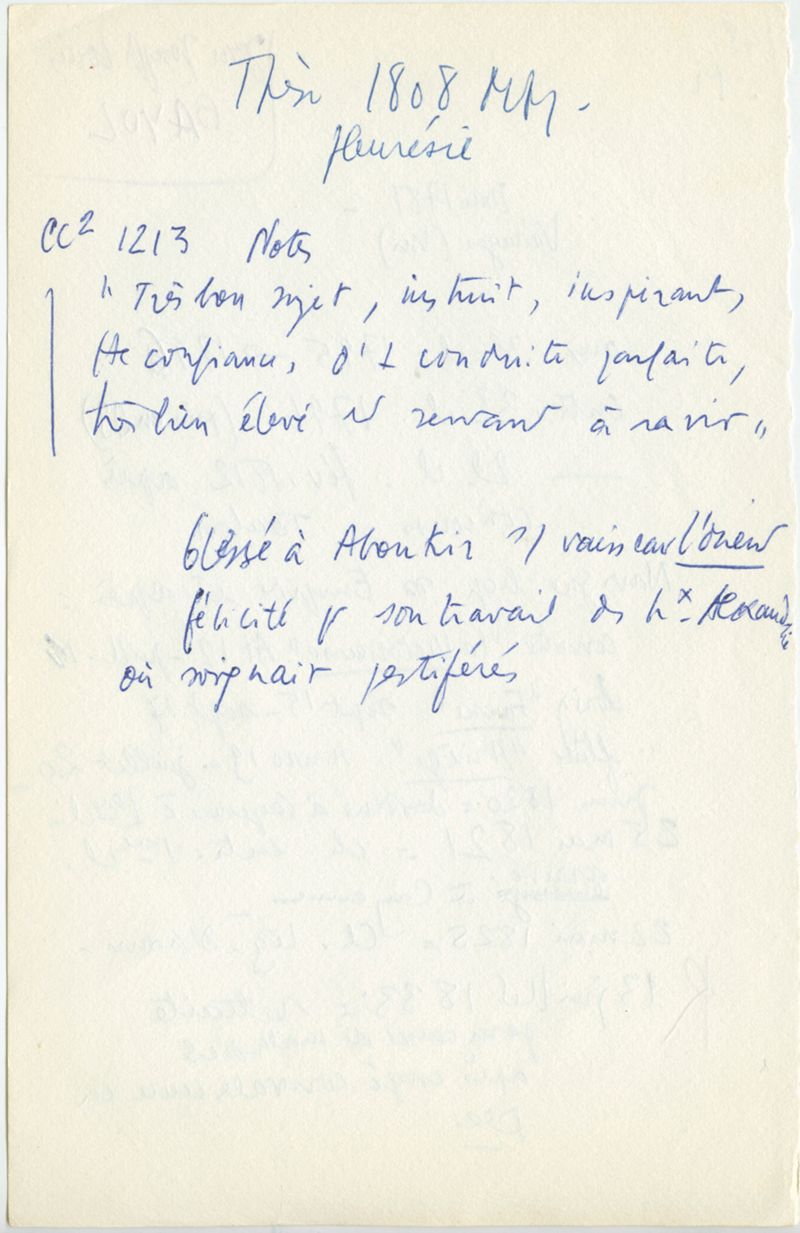 Thèse 1808 MM.
pleurésie
CC² 1213 Notes
" Très bon sujet, instruit, inspirant,
tte confiance, d'1 conduite parfaite,
très bien élevé et servant à ravir "
blessé à Aboukir s/ vaisseau l'Orient
félicité pr son travail ds hx Alexandrie
où soignait pestiférés